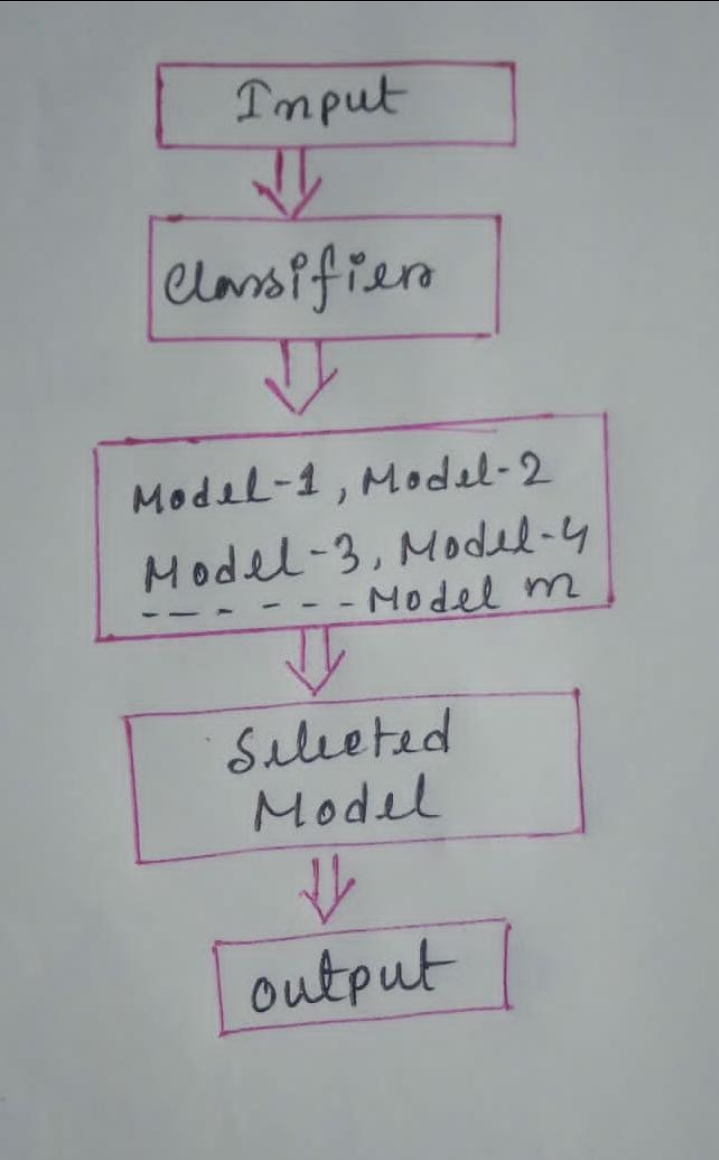 Input
Classifier
Model-1, Model-2
Model-3, Model-4
- - - - - - - Model n
Selected
Model
output